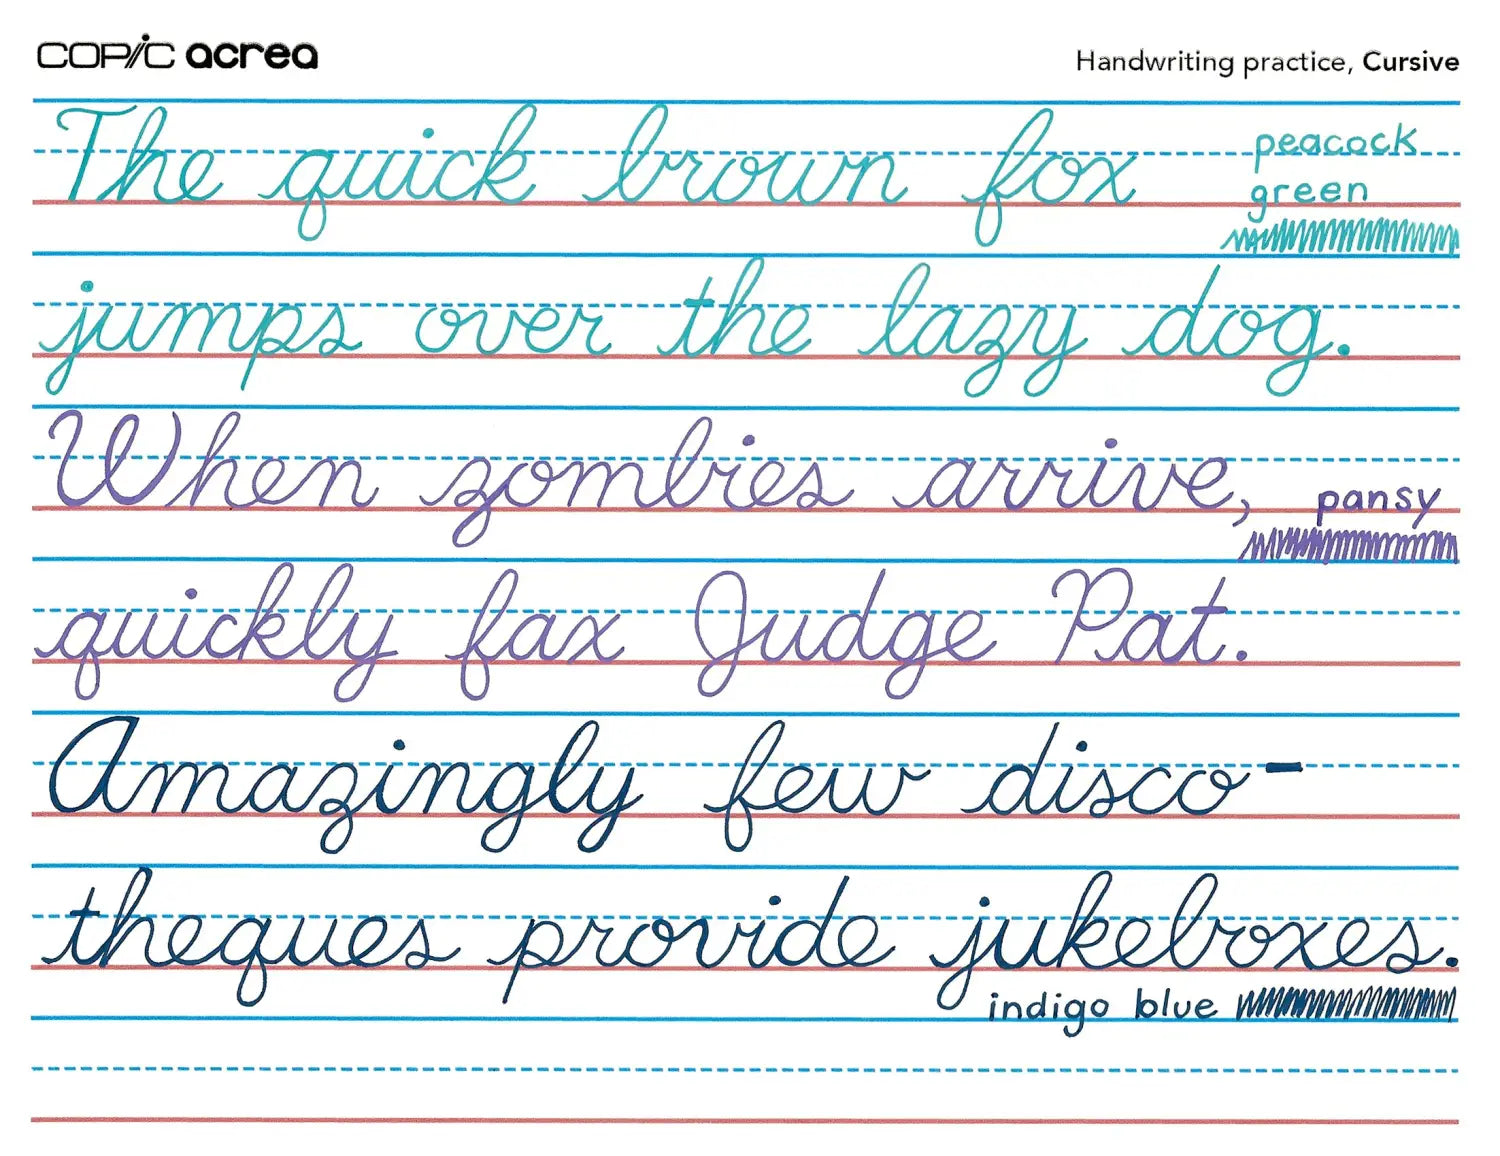 COPIC acrea
Handwriting practice, Cursive
The quick brown fox
peacock
green
jumps over the lazy dog.
When zombies arrive,
pansy
quickly fax Judge Pat.
Amazingly few disco-
theques provide jukeboxes.
indigo blue